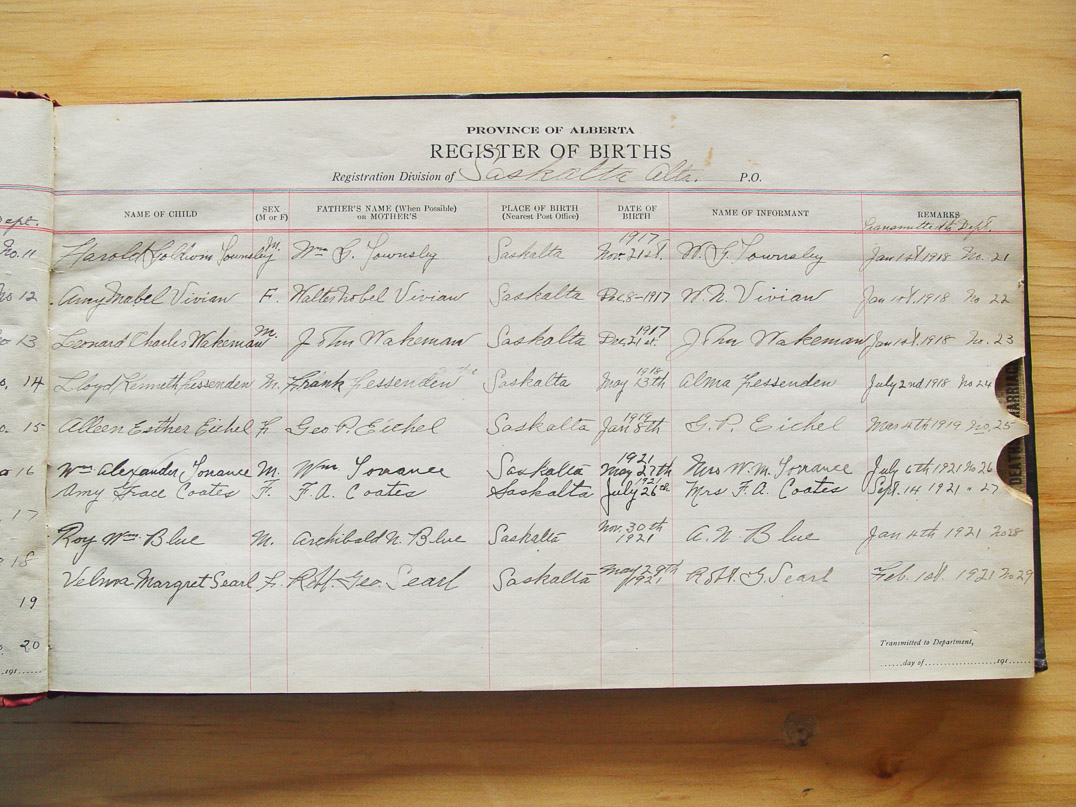 PROVINCE OF ALBERTA
REGISTER OF BIRTHS
Registration Division of Saskalta Alta. P.O.
NAME OF CHILD SEX (M or F) FATHER'S NAME (When Possible) or MOTHER'S PLACE OF BIRTH (Nearest Post Office) DATE OF BIRTH NAME OF INFORMANT REMARKS
Transmitted to Dept.
Harold Townsley M. Wm Townsley Saskalta 1917 Nov. 21st. W. Townsley Jan 1st 1918 No. 21
Amy Mabel Vivian F. Walter Nobel Vivian Saskalta Dec 8-1917 W. N. Vivian Jan 1st. 1918 No 22
Leonard Charles Wakeman M. John Wakeman Saskalta 1917 Dec 21st. John Wakeman Jan 1st 1918 No. 23
Lloyd Kenneth Fessenden M. Frank Fessenden Saskalta 1918 May 13th Alma Fessenden July 2nd 1918 No 24
Alleen Esther Eichel F. Geo P. Eichel Saskalta 1919 Jan 8th G. P. Eichel Mar 4th 1919 No. 25
Wm Alexander Torrance M. Wm Torrance Saskalta 1921 May 27th Mrs W.M. Torrance July 6th 1921 No 26
Amy Grace Coates F. F. A. Coates Saskalta 1921 July 26th Mrs F. A. Coates Sept. 14 1921 " 27
Roy Wm Blue M. Archibald N. Blue Saskalta Nov. 30th 1921 A. N. Blue Jan 4th 1921 No 28
Velma Margret Searl F. Robt. Geo. Searl Saskalta May 29th 1921 Robt. G. Searl Feb. 1st. 1921 No 29
Transmitted to Department,
......day of......................191......
Dept.
No. 11
No 12
13
14
15
16
17
18
19
20
.191......
DEATH
MARRIAG